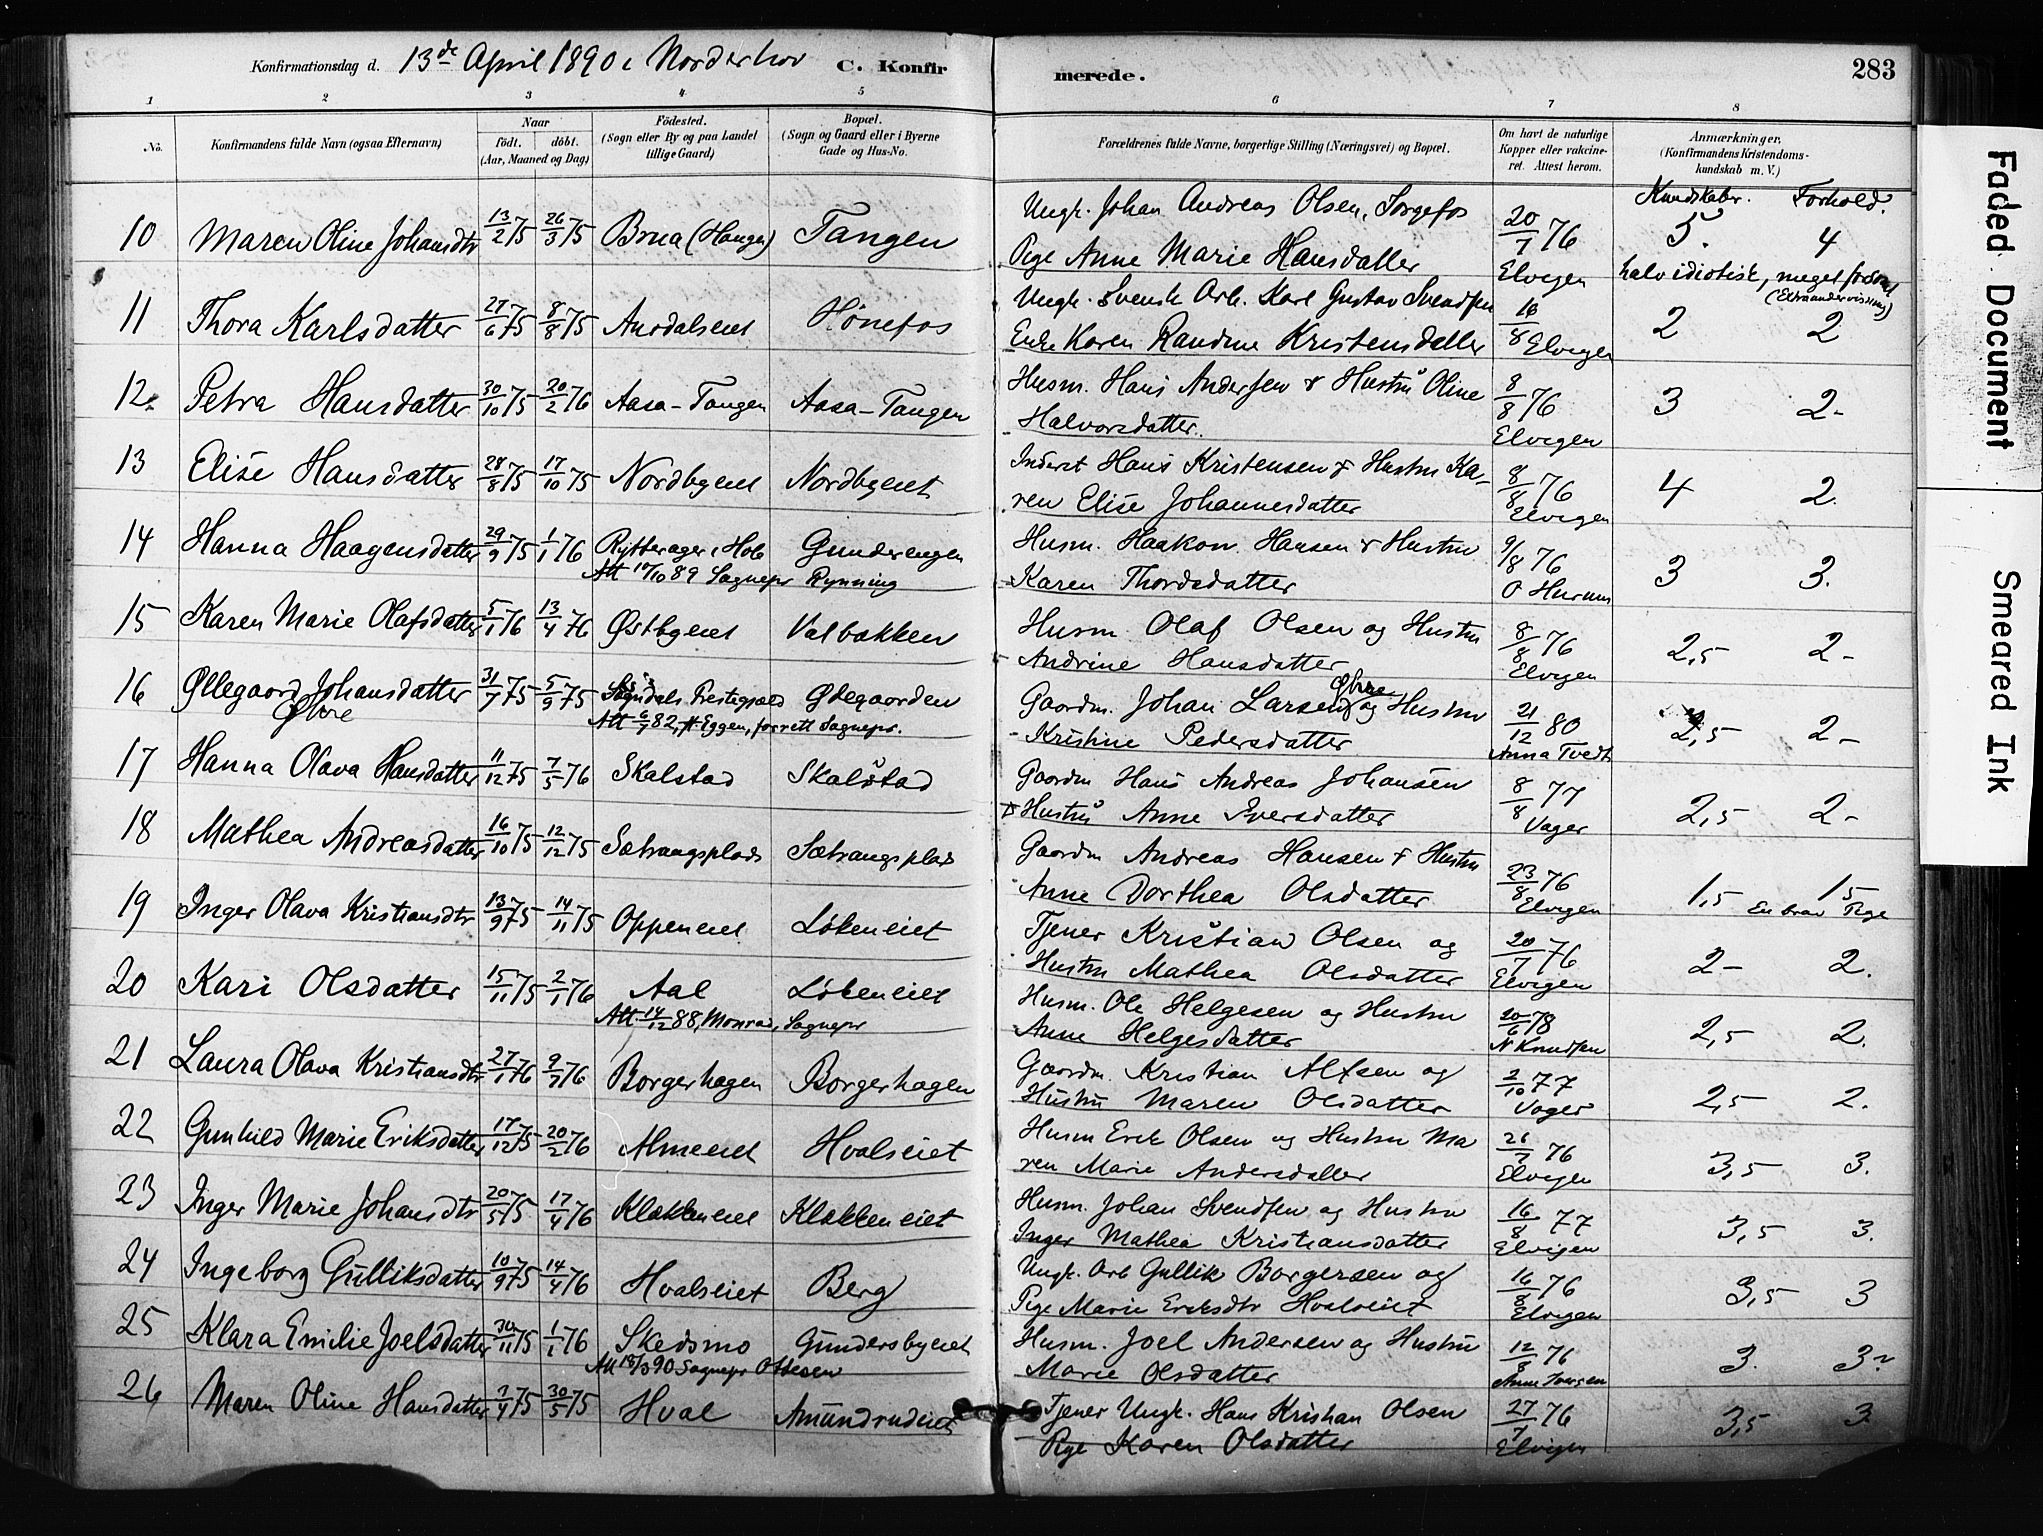 Konfirmationsdag d. 13de April 1890 i Norderhov C. Konfirmerede. 283
1 2 3 4 5 6 7 8
No. Konfirmandens fulde Navn (ogsaa Efternavn) Naar født. døbt. (Aar, Maaned og Dag) Fødested. (Sogn eller By og paa Landet tillige Gaard) Bopæl. (Sogn og Gaard eller i Byerne Gade og Hus-No. Forældrenes fulde Navne, borgerlige Stilling (Næringsvei) og Bopæl. Om havt de naturlige Kopper eller vakcineret. Attest herom. Anmærkninger. (Konfirmandens Kristendomskundskab m. V.)
Kundskaber. Forhold.
10 Maren Oline Johansdtr 13/2 75 26/3 75 Brua (Haugen) Tangen Ungk. Johan Andreas Olsen, Sorgefos
Pige Anne Marie Hansdatter 20/7 76 Elvigen 5. 4
halv idiotisk, meget forsømt (Extraundervisning)
11 Thora Karlsdatter 27/6 75 8/8 75 Aurdalseiet Hønefos Ungk. Svensk Arb. Karl Gustav Svendsen
Enke Karen Randine Kristensdatter 16/8 Elvigen 2 2
12. Petra Hansdatter 30/10 75 20/2 76 Aasa-Tangen Aasa-Tangen Husm. Hans Andersen & Hustru Oline
Halvorsdatter. 8/8 76 Elvigen 3 2-
13 Elise Hansdatter 28/8 75 17/10 75 Nordbyeiet Nordbyeiet Inderst Hans Kristensen & Hustru Ka-
ren Elise Johannesdatter 8/8 76 Elvigen 4 2.
14 Hanna Haagensdatter 29/9 75 1/1 76 Rytterager i Hole Gunderengen Husm. Haakon Hansen & Hustru
Att 10/10 89 Sognepr Rynning
Karen Thordsdatter 9/8 76 O Hurum 3 3.
15 Karen Marie Olafsdatter 5/1 76 13/4 76 Østbyeiet Valbakken Husm. Olaf Olsen og Hustru
Andrine Hansdatter 8/8 76 Elvigen 2,5 2-
16 Øllegaard Johansdatter 31/7 75 5/9 75 Sogndals Prestegjæld Ødegaarden Gaardm. Johan Larsen Øfsre og Hustru
Øfsre
Att 6/7 82, Eggen, forrett Sognepr.
Kristine Pedersdatter 21/12 80 Anna Tvedt 2,5 2-
17 Hanna Olava Hansdatter 11/12 75 7/5 76 Skalstad Skalstad Gaardm Hans Andreas Johansen
& Hustru Anne Iversdatter 8/8 77 Vager 2,5 2-
18 Mathea Andreasdatter 16/10 75 12/12 75 Sætrangsplads Sætrangsplads Gaardm Andreas Hansen & Hustru
Anne Dorthea Olsdatter 23/8 76 Elvigen 1,5 1,5
En brav Pige
19 Inger Olava Kristiansdtr 13/9 75 14/11 75 Oppeneiet Løkeneiet Tjener Kristian Olsen og
Hustru Mathea Olsdatter 20/7 76 Elvigen 2- 2.
20 Kari Olsdatter 15/11 75 2/1 76 Aal Løkeneiet Husm. Ole Helgesen og Hustru
Att 14/12 88, Monrad, Sognepr
Anne Helgesdatter 20/6 78 N Knudsen 2,5 2.
21 Laura Olava Kristiansdtr 27/1 76 9/7 76 Borgerhagen Borgerhagen Gaardm. Kristian Alfsen og
Hustru Maren Olsdatter 2/10 77 Vager 2,5 2.
22 Gunhild Marie Eriksdatter 17/12 75 20/2 76 Almeeiet Hvalseiet Husm Erik Olsen og Hustru Ma
ren Marie Andersdatter 26/7 76 Elvigen 3,5 3.
23 Inger Marie Johansdtr 20/5 75 17/4 76 Klækkeneiet Klækkeneiet Husm. Johan Svendsen og Hustru
Inger Mathea Kristiansdatter 16/8 77 Elvigen 3,5 3.
24 Ingeborg Gulliksdatter 10/9 75 14/4 76 Hvalseiet Berg Ungk. Arb Gullik Borgersen og
Pige Marie Eriksdtr Hvalseiet 16/8 76 Elvigen 3,5 3
25 Klara Emilie Joelsdatter 30/11 75 1/1 76 Skedsmo Gundersbyeiet Husm. Joel Andersen og Hustru
Att 18/3 90 Sognepr Ottesen
Marie Olsdatter 12/8 76 Anne Iversen 3. 3
26 Maren Oline Hansdatter 3/4 75 30/5 75 Hval Amundrudeiet Tjener Ungk. Hans Kristian Olsen
Pige Karen Olsdatter 27/7 76 Elvigen 3,5 3.
Faded Document
Smeared Ink